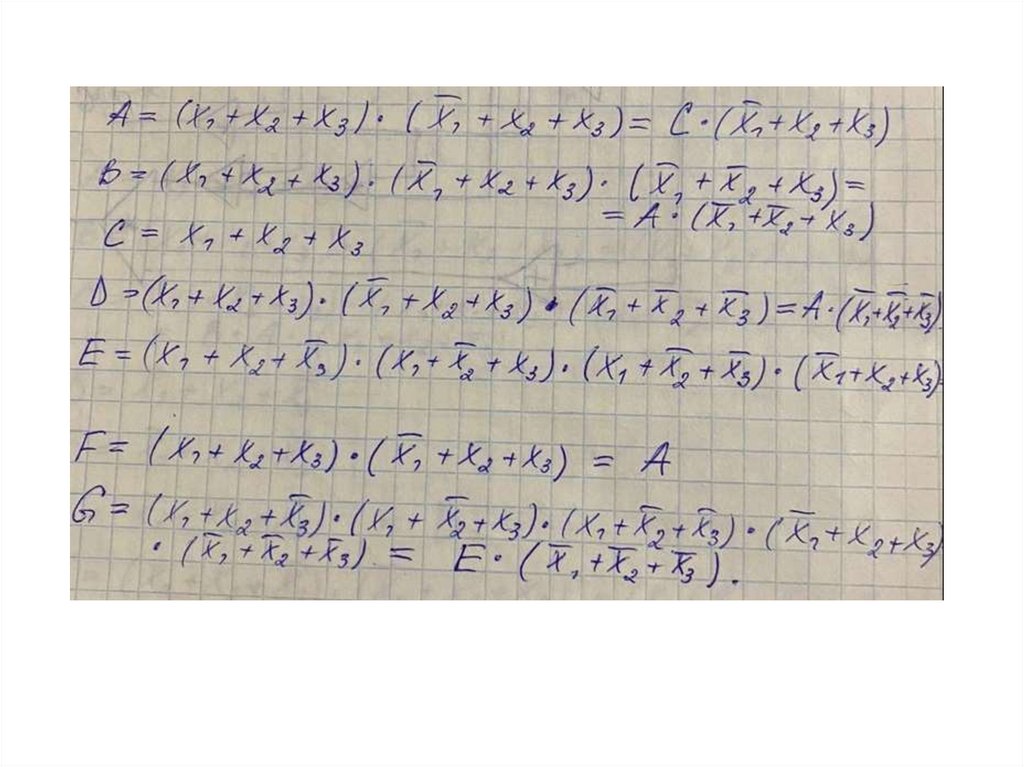 A = (X₁ + X₂ + X₃) · (X̅₁ + X₂ + X₃) = C · (X̅₁ + X₂ + X₃)
B = (X₁ + X₂ + X₃) · (X̅₁ + X₂ + X₃) · (X̅₁ + X̅₂ + X₃) =
= A · (X̅₁ + X̅₂ + X₃)
C = X₁ + X₂ + X₃
D = (X₁ + X₂ + X₃) · (X̅₁ + X₂ + X₃) · (X̅₁ + X̅₂ + X̅₃) = A · (X̅₁ + X̅₂ + X̅₃)
E = (X₁ + X₂ + X̅₃) · (X₁ + X̅₂ + X₃) · (X₁ + X̅₂ + X̅₃) · (X̅₁ + X₂ + X₃)
F = (X₁ + X₂ + X₃) · (X̅₁ + X₂ + X₃) = A
G = (X₁ + X₂ + X̅₃) · (X₁ + X̅₂ + X₃) · (X₁ + X̅₂ + X̅₃) · (X̅₁ + X₂ + X₃)
· (X̅₁ + X̅₂ + X̅₃) = E · (X̅₁ + X̅₂ + X̅₃).